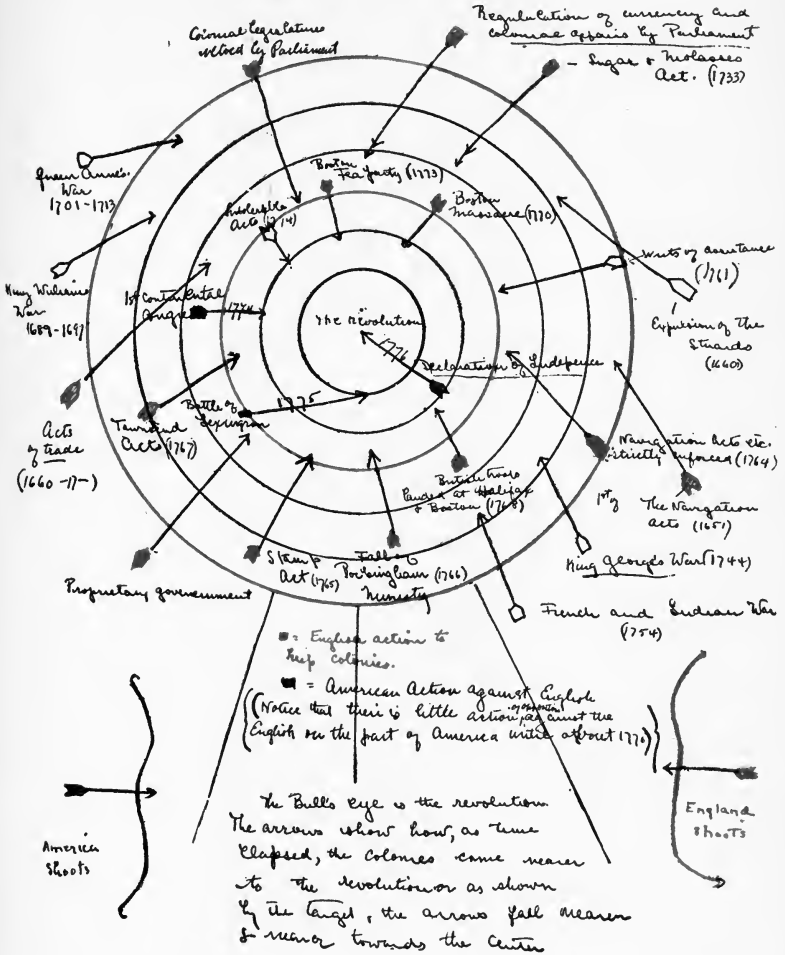 Colonial legislatures
vetoed by Parliament
Regululation of currency and
colonial affairs by Parliament
- Sugar & Molasses
Act. (1733)
Queen Anne's
War
1701-1713
Boston
Tea Party (1773)
Intolerable
Acts (1774)
Boston
Massacre (1770)
Writs of assistance
(1761)
King William's
War
1689-1697
1st Continental
Congress
1774
The Revolution
1776
Declaration of Indepence
Expulsion of The
Stuards
(1660)
Acts
of trade
(1660-17-)
Townsend
Acts (1767)
Battle of
Lexington
1775
Navigation Acts etc.
strictly enforced (1764)
British troops
landed at Halifax
& Boston (1768)
1st of
The Navigation
acts (1651)
King George's War (1744)
Proprietary government
Stamp
Act (1765)
Fall of
Rockingham (1766)
Ministry
French and Indian War
(1754)
= English action to
help colonies.
= American Action against English
(Notice that their is little action, or opposition against the
English on the part of America until about 1770)
America
Shoots
England
Shoots
The Bull's eye is the revolution
The arrows show how, as time
elapsed, the colonies came nearer
to the revolution or as shown
by the target, the arrows fall nearer
& nearer towards the center